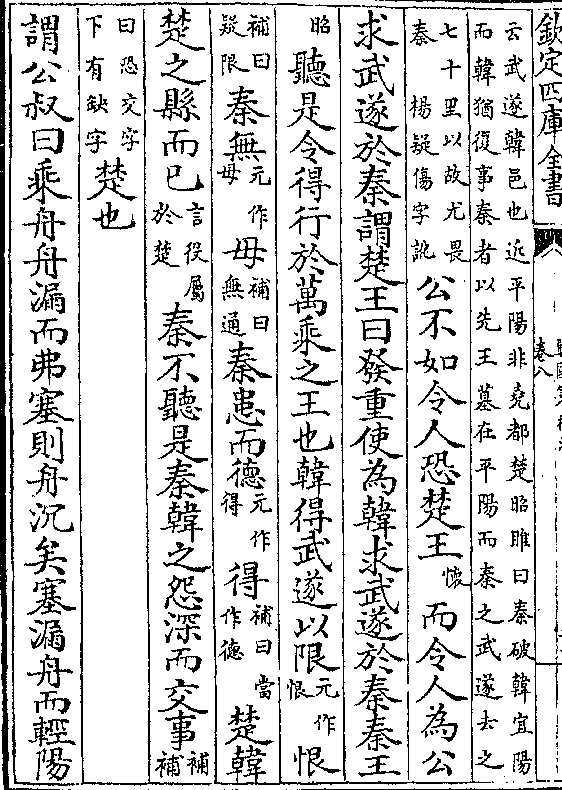 欽定四庫全書
卷八
云武遂韓邑也近平陽非堯都楚昭睢曰秦破韓宜陽
而韓猶復事秦者以先王墓在平陽而秦之武遂去之
七十里以故尤畏秦 楊疑傷字訛公不如令人恐楚王懷而令人為公
求武遂於秦謂楚王曰發重使為韓求武遂於秦秦王
昭聽是令得行於萬乘之王也韓得武遂以限元作恨恨
補曰疑限秦無元作毋毋補曰無通秦患而德元作得得補曰當作德楚韓
楚之縣而已言役屬於楚秦不聽是秦韓之怨深而交事補補
曰恐交字下有缺字楚也
謂公叔曰乘舟舟漏而弗塞則舟沉矣塞漏舟而輕陽